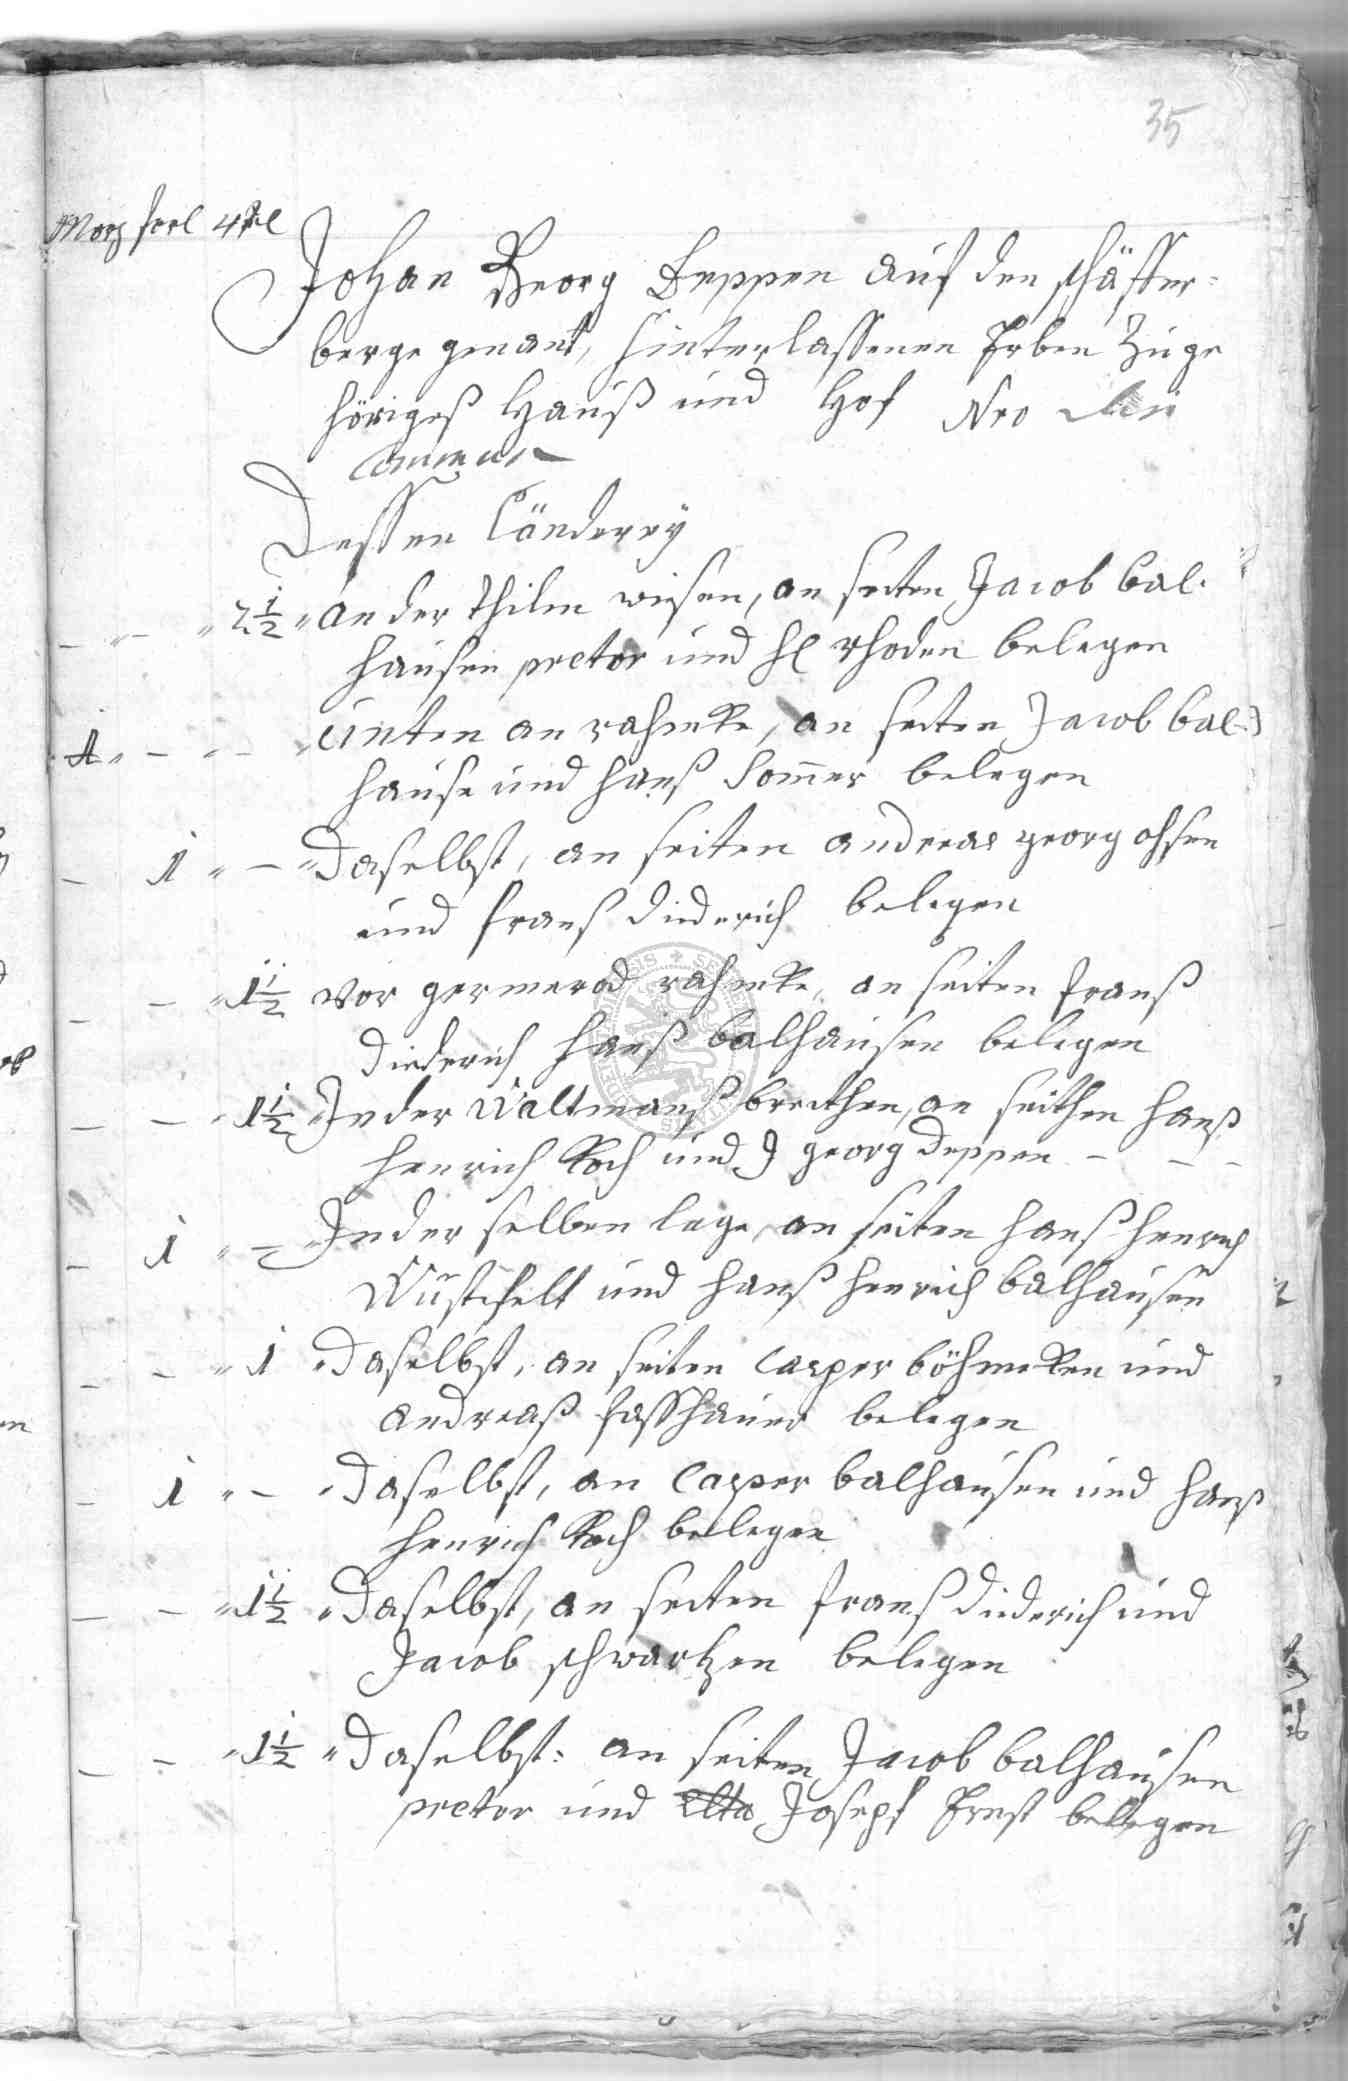 35
Morg forl 4tel
Johan Georg Deppen auf den schäffer-
berge genant, hinterlassenen Erben Zuge
höriges Hauß und Hof Nro
Dessen Länderey
- " - " 2 1/2 " an der Thilen wiesen, an seiten Jacob bal-
hausen pretor und H rhoden belegen
1 " - " - " Unten an rahmke, an seiten Jacob bal-
hause und hanß Sommer belegen
- 1 " - " Daselbst, an seiten andreas georg ohsen
und franß diederich belegen
- - " 1 1/2 vor germerod rahmke, an seiten franß
diederich hanß balhausen belegen
- - " 1 1/2 " In der Waltmanß breithen, an seithen hanß
henrich Koch und J georg Deppen - - -
- 1 " - " In der selben lage, an seiten hanß henrich
Wüstefelt und hanß henrich balhausen
- - " 1 " Daselbst, an seiten Casper böhmeken und
andreaß fasshauer belegen
- 1 " - " Daselbst, an Casper balhausen und hanß
henrich Koch belegen
- - " 1 1/2 " Daselbst, an seiten franß diederich und
Jacob schwartzen belegen
- - " 1 1/2 " Daselbst: an seiten Jacob balhausen
pretor und Joseph Ernst belegen